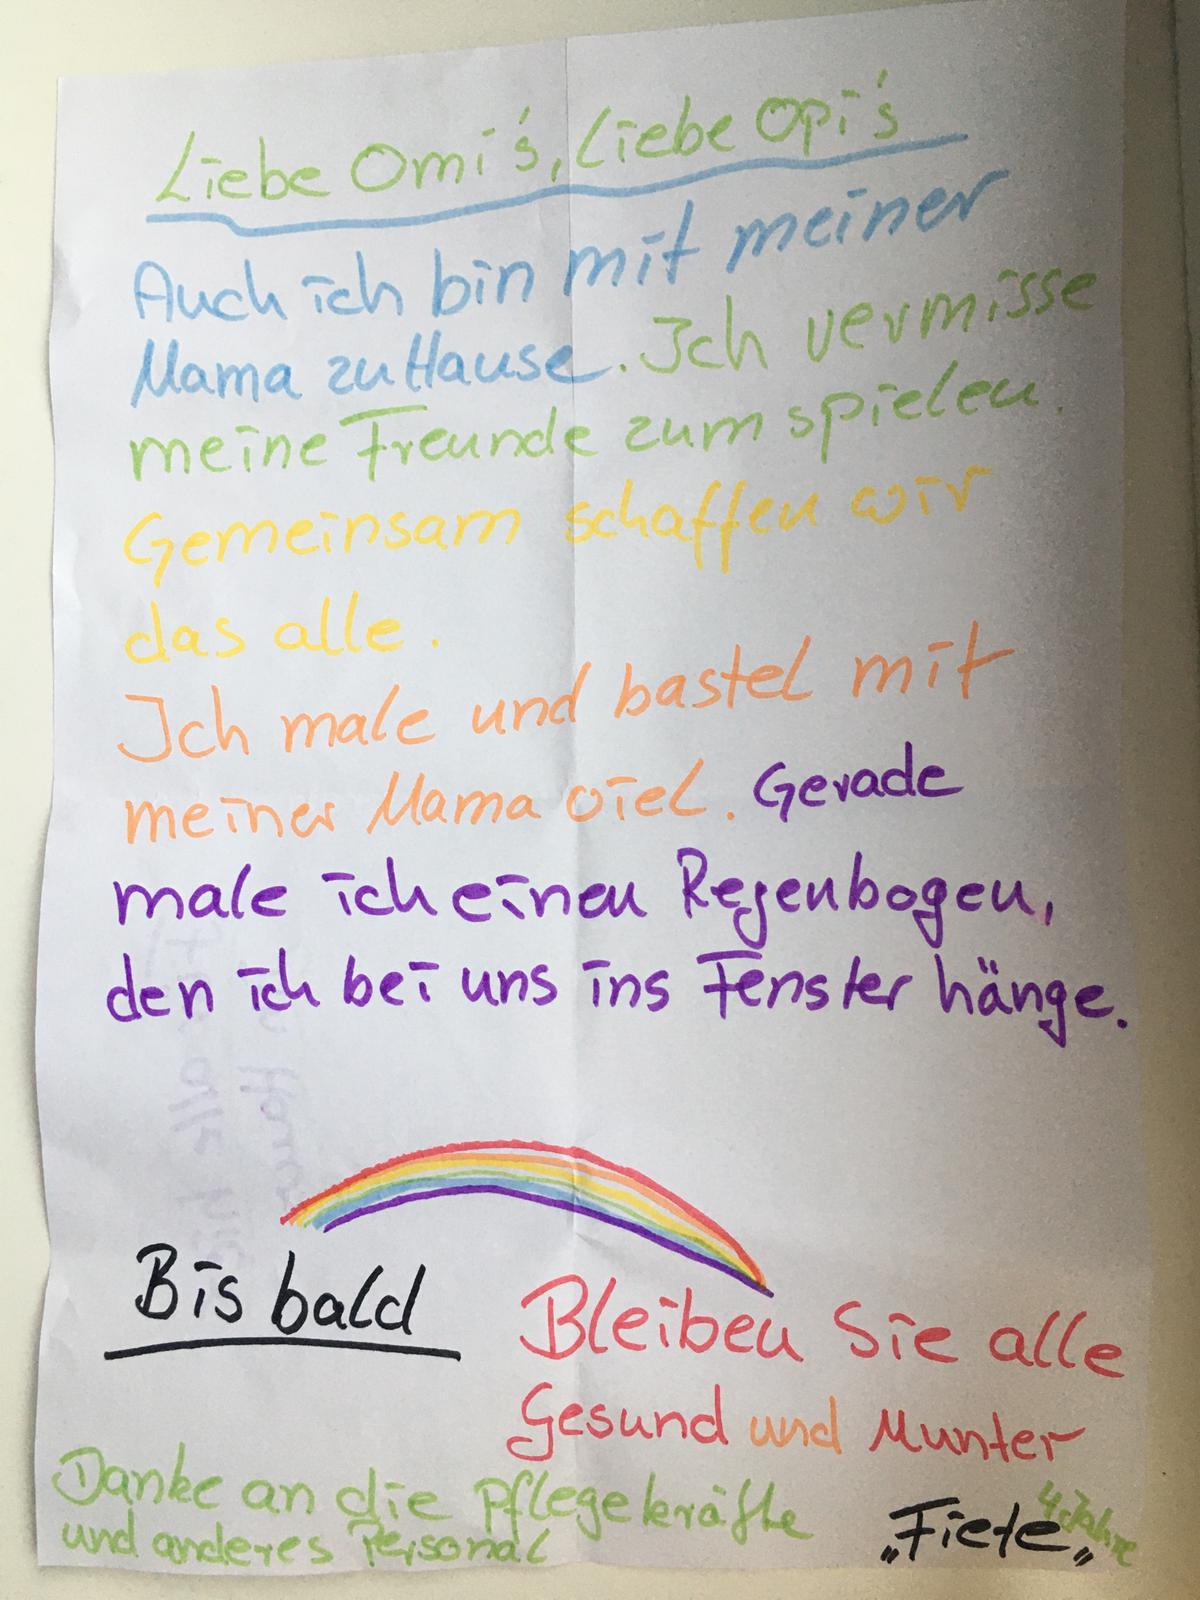 Liebe Omi's, Liebe Opi's
Auch ich bin mit meiner
Mama zu Hause. Ich vermisse
meine Freunde zum spielen.
Gemeinsam schaffen wir
das alle.
Ich male und bastel mit
meiner Mama viel. Gerade
male ich einen Regenbogen,
den ich bei uns ins Fenster hänge.
Bis bald
Bleiben Sie alle
Gesund und Munter
Danke an die Pflegekräfte
und anderes Personal
„Fiete„ 4 Jahre